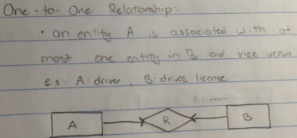 One - to - One Relationship:
• an entity A is associated with at
most one entity in B and vice versa
ex: A: driver, B: drives license
A R B